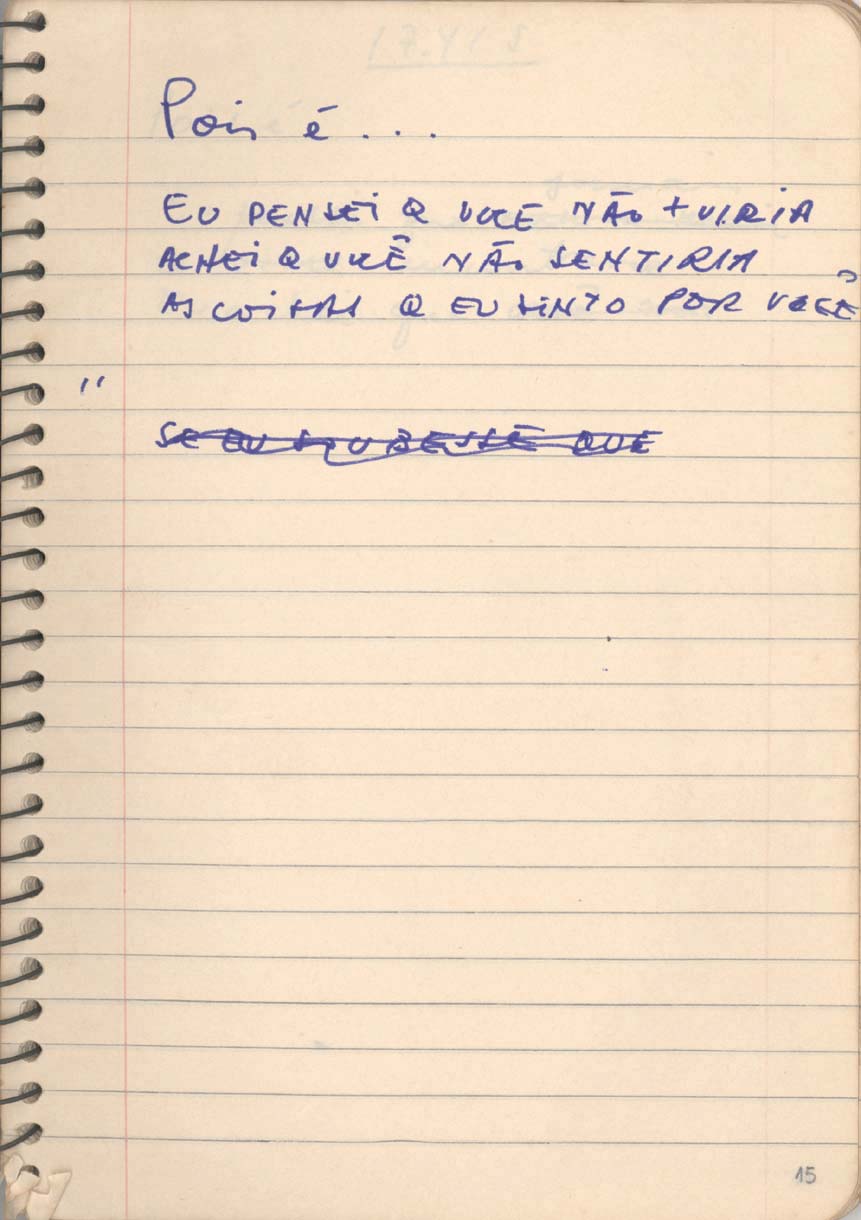 Pois é...
EU PENSEI Q VOCE NÃO + VIRIA
ACHEI Q VOCÊ NÃO SENTIRIA
AS COISAS Q EU SINTO POR VOCÊ
"
SE EU SOUBESSE QUE
15